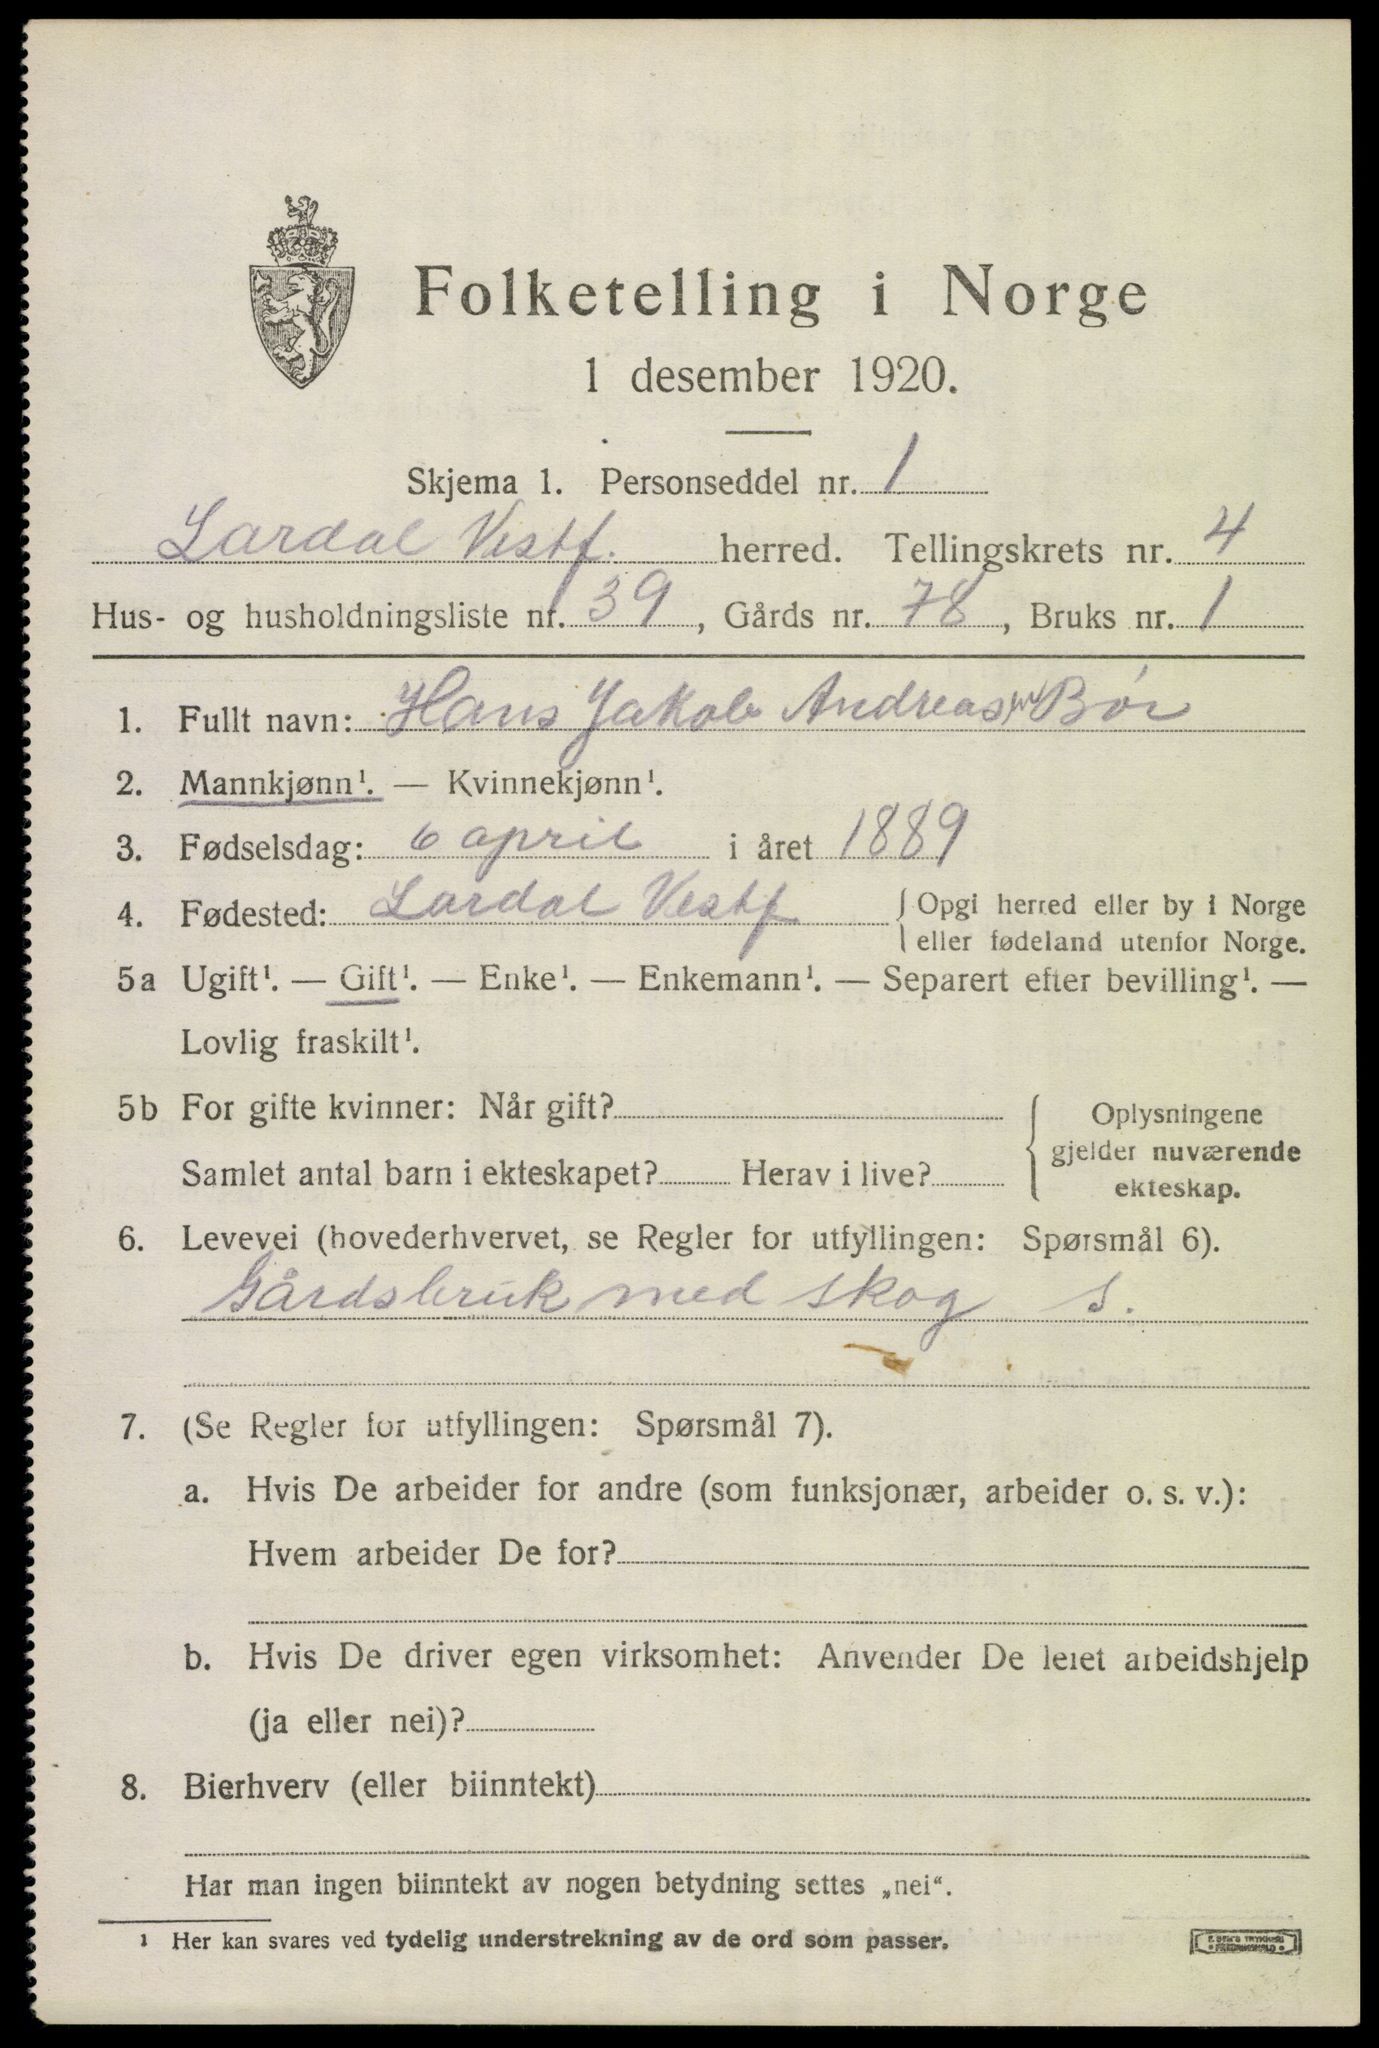 Folketelling i Norge
1 desember 1920.
Skjema 1. Personseddel nr. 1
Lardal Vestf. herred. Tellingskrets nr. 4
Hus- og husholdningsliste nr. 39, Gårds nr. 78, Bruks nr. 1
1. Fullt navn: Hans Jakob Andreas Bør
2. Mannkjønn¹. — Kvinnekjønn¹.
3. Fødselsdag: 6 april i året 1889
4. Fødested: Lardal Vestf { Opgi herred eller by i Norge
eller fødeland utenfor Norge.
5a Ugift¹. — Gift¹. — Enke¹. — Enkemann¹. — Separert efter bevilling¹. —
Lovlig fraskilt¹.
5b For gifte kvinner: Når gift?
Samlet antal barn i ekteskapet? Herav i live?
{ Oplysningene
gjelder nuværende
ekteskap.
6. Levevei (hovederhvervet, se Regler for utfyllingen: Spørsmål 6).
Gårdsbruk med skog s.
7. (Se Regler for utfyllingen: Spørsmål 7).
a. Hvis De arbeider for andre (som funksjonær, arbeider o. s. v.):
Hvem arbeider De for?
b. Hvis De driver egen virksomhet: Anvender De leiet arbeidshjelp
(ja eller nei)?
8. Bierhverv (eller biinntekt)
Har man ingen biinntekt av nogen betydning settes „nei“.
¹ Her kan svares ved tydelig understrekning av de ord som passer.